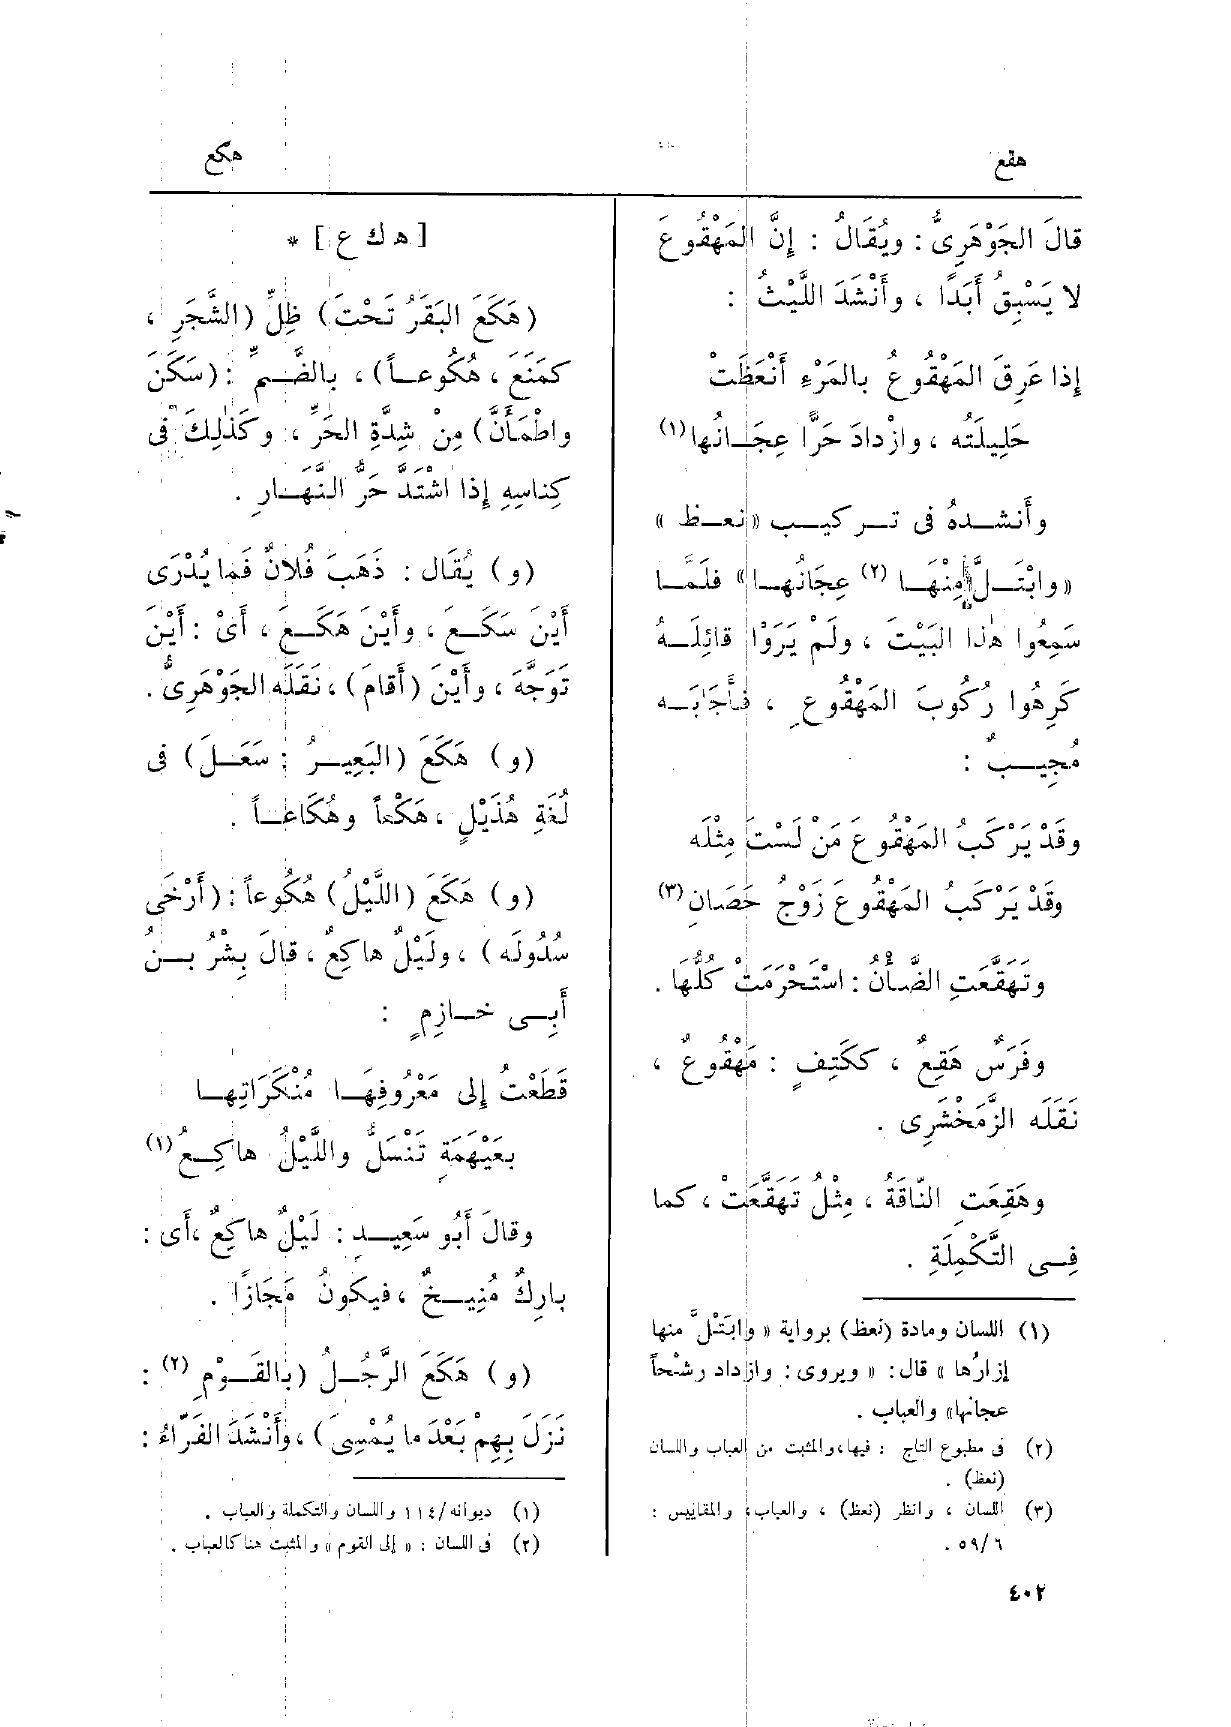 هقع
هكع
قالَ الجَوْهَرِىُّ : ويُقَالُ : إِنَّ المَهْقُوعَ
لا يَسْبِقُ أَبَدًا ، وأَنْشَدَ اللَّيْثُ :
إِذا عَرِقَ المَهْقُوعُ بالمَرْءِ أَنْعَظَتْ
حَلِيلَتُه ، وازْدادَ حَرًّا عِجَانُها (١)
وأَنشدهُ فى تركيب «نعظ »
«وابْتَلَّ مِنْهَا (٢) عِجَانُها» فلَمَّا
سَمِعُوا هٰذا البَيْتَ ، ولَمْ يَرَوْا قائِلَهُ
كَرِهُوا رُكُوبَ المَهْقُوعِ ، فأَجَابَه
مُجِيبٌ :
وقَدْ يَرْكَبُ المَهْقُوعَ مَنْ لَسْتَ مِثْلَه
وقَدْ يَرْكَبُ المَهْقُوعَ زَوْجُ حَصَانِ (٣)
وتَهَقَّعَتِ الضَّأْنُ : اسْتَحْرَمَتْ كُلُّها .
وفَرَسٌ هَقِعٌ ، ككَتِفٍ : مَهْقُوعٌ ،
نَقَلَه الزَّمَخْشَرِى .
وهَقِعَتِ النّاقَةُ ، مِثْلُ تَهَقَّعَتْ ، كما
فِى التَّكْمِلَةِ .
(١) اللسان ومادة (نعظ) برواية « وابتَلَّ منها
إزارُها » قال : « ويروى : وازداد رشْحاً
عجانها» والعباب .
(٢) فى مطبوع التاج : فيها، والمثبت من العباب واللسان
(نعظ) .
(٣) اللسان ، وانظر (نعظ) ، والعباب، والمقاييس :
٥٩/٦ .
[ ه ك ع ] *
(هَكَعَ البَقَرُ تَحْتَ) ظِلِّ (الشَّجَرِ ،
كمَنَعَ ، هُكُوعاً) ، بالضَّمِّ : (سَكَنَ
واطْمَأَنَّ) مِنْ شِدَّةِ الحَرِّ ، وكَذٰلِكَ فى
كِناسِهِ إِذا اشْتَدَّ حَرُّ النَّهَارِ .
(و) يُقَال : ذَهَبَ فُلانٌ فَما يُدْرَى
أَيْنَ سَكَعَ ، وأَيْنَ هَكَعَ ، أَىْ : أَيْنَ
تَوَجَّهَ ، وأَيْنَ (أَقامَ) ، نَقَلَه الجَوْهَرِىُّ .
(و) هَكَعَ (البَعِيرُ : سَعَلَ) فى
لُغَةِ هُذَيْلٍ ، هَكْعاً وهُكَاعاً .
(و) هَكَعَ (اللَّيْلُ) هُكُوعاً : (أَرْخَى
سُدُولَه ) ، ولَيْلٌ هاكِعٌ ، قالَ بِشْرُ بنُ
أَبِى خازِمٍ :
قَطَعْتُ إِلى مَعْرُوفِهَا مُنْكَرَاتِها
بعَيْهَمَةٍ تَنْسَلُّ واللَّيْلُ هاكِعُ (١)
وقالَ أَبُو سَعِيدٍ : لَيْلٌ هاكِعٌ ، أَى :
بارِكٌ مُنِيخٌ ، فيكونُ مَجَازًا .
(و) هَكَعَ الرَّجُلُ (بالقَوْمِ (٢) :
نَزَلَ بِهِمْ بَعْدَ ما يُمْسِى) ، وأَنْشَدَ الفَرَّاءُ :
(١) ديوانه/١١٤ واللسان والتكملة والعباب .
(٢) فى اللسان : « إلى القوم » والمثبت هنا كالعباب .
٤٠٢